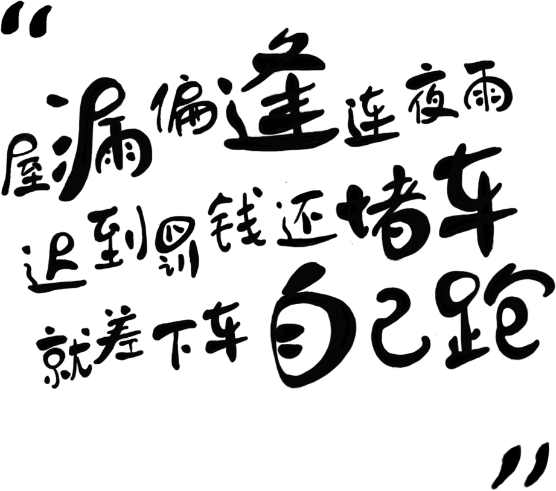 “
屋漏偏逢连夜雨
迟到罚钱还堵车
就差下车自己跑
”